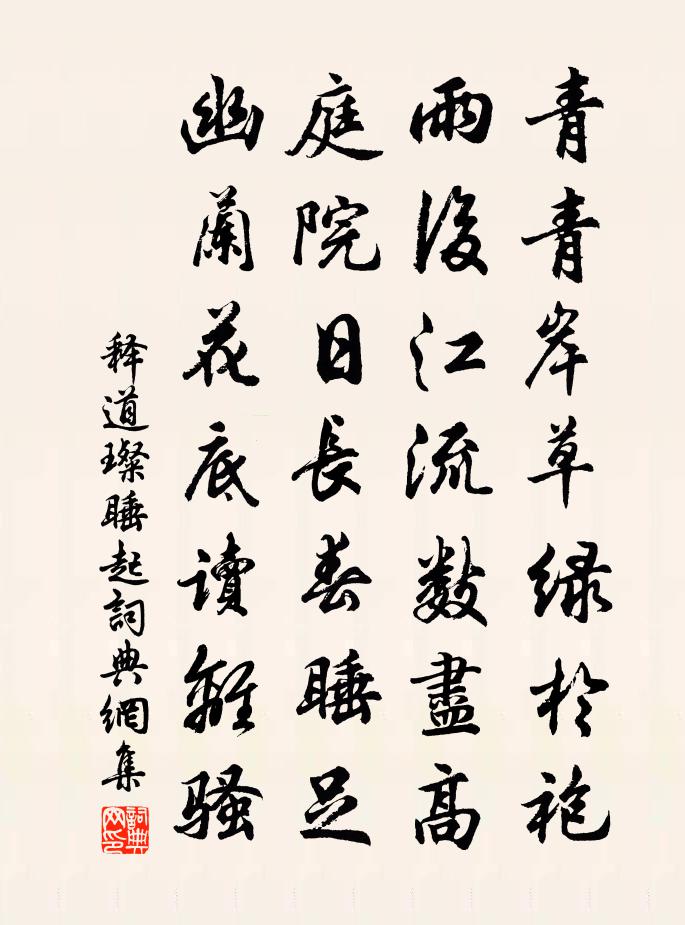 青青岸草緑於袍
雨後江流數盡高
庭院日長春睡足
幽蘭花底讀離騷
释道璨睡起詞典網集
詞典網印